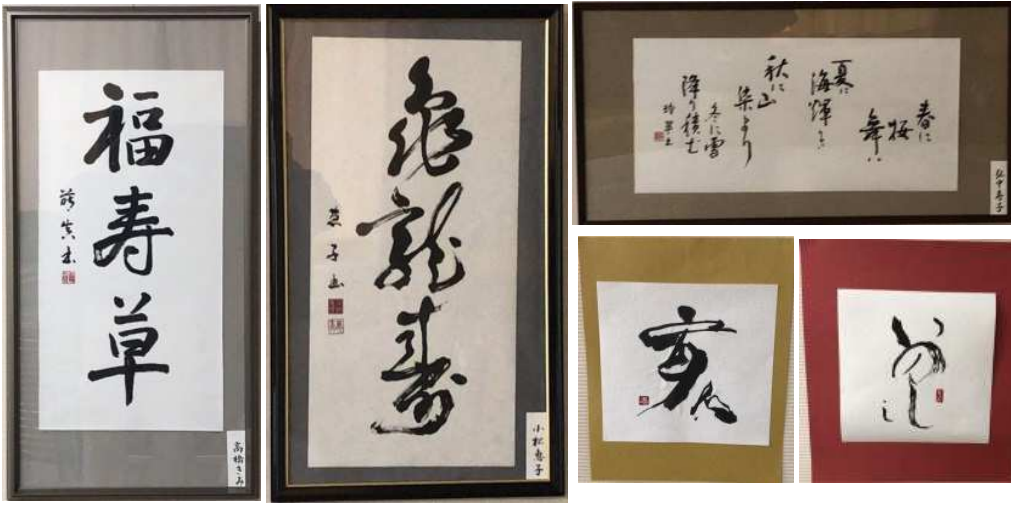 福寿草
高橋きみ
亀龍寿
恵子書
小松恵子
春に
桜
舞い
夏に
海輝き
秋に山
染まり
冬に雪
降り積む
亥
いのしし